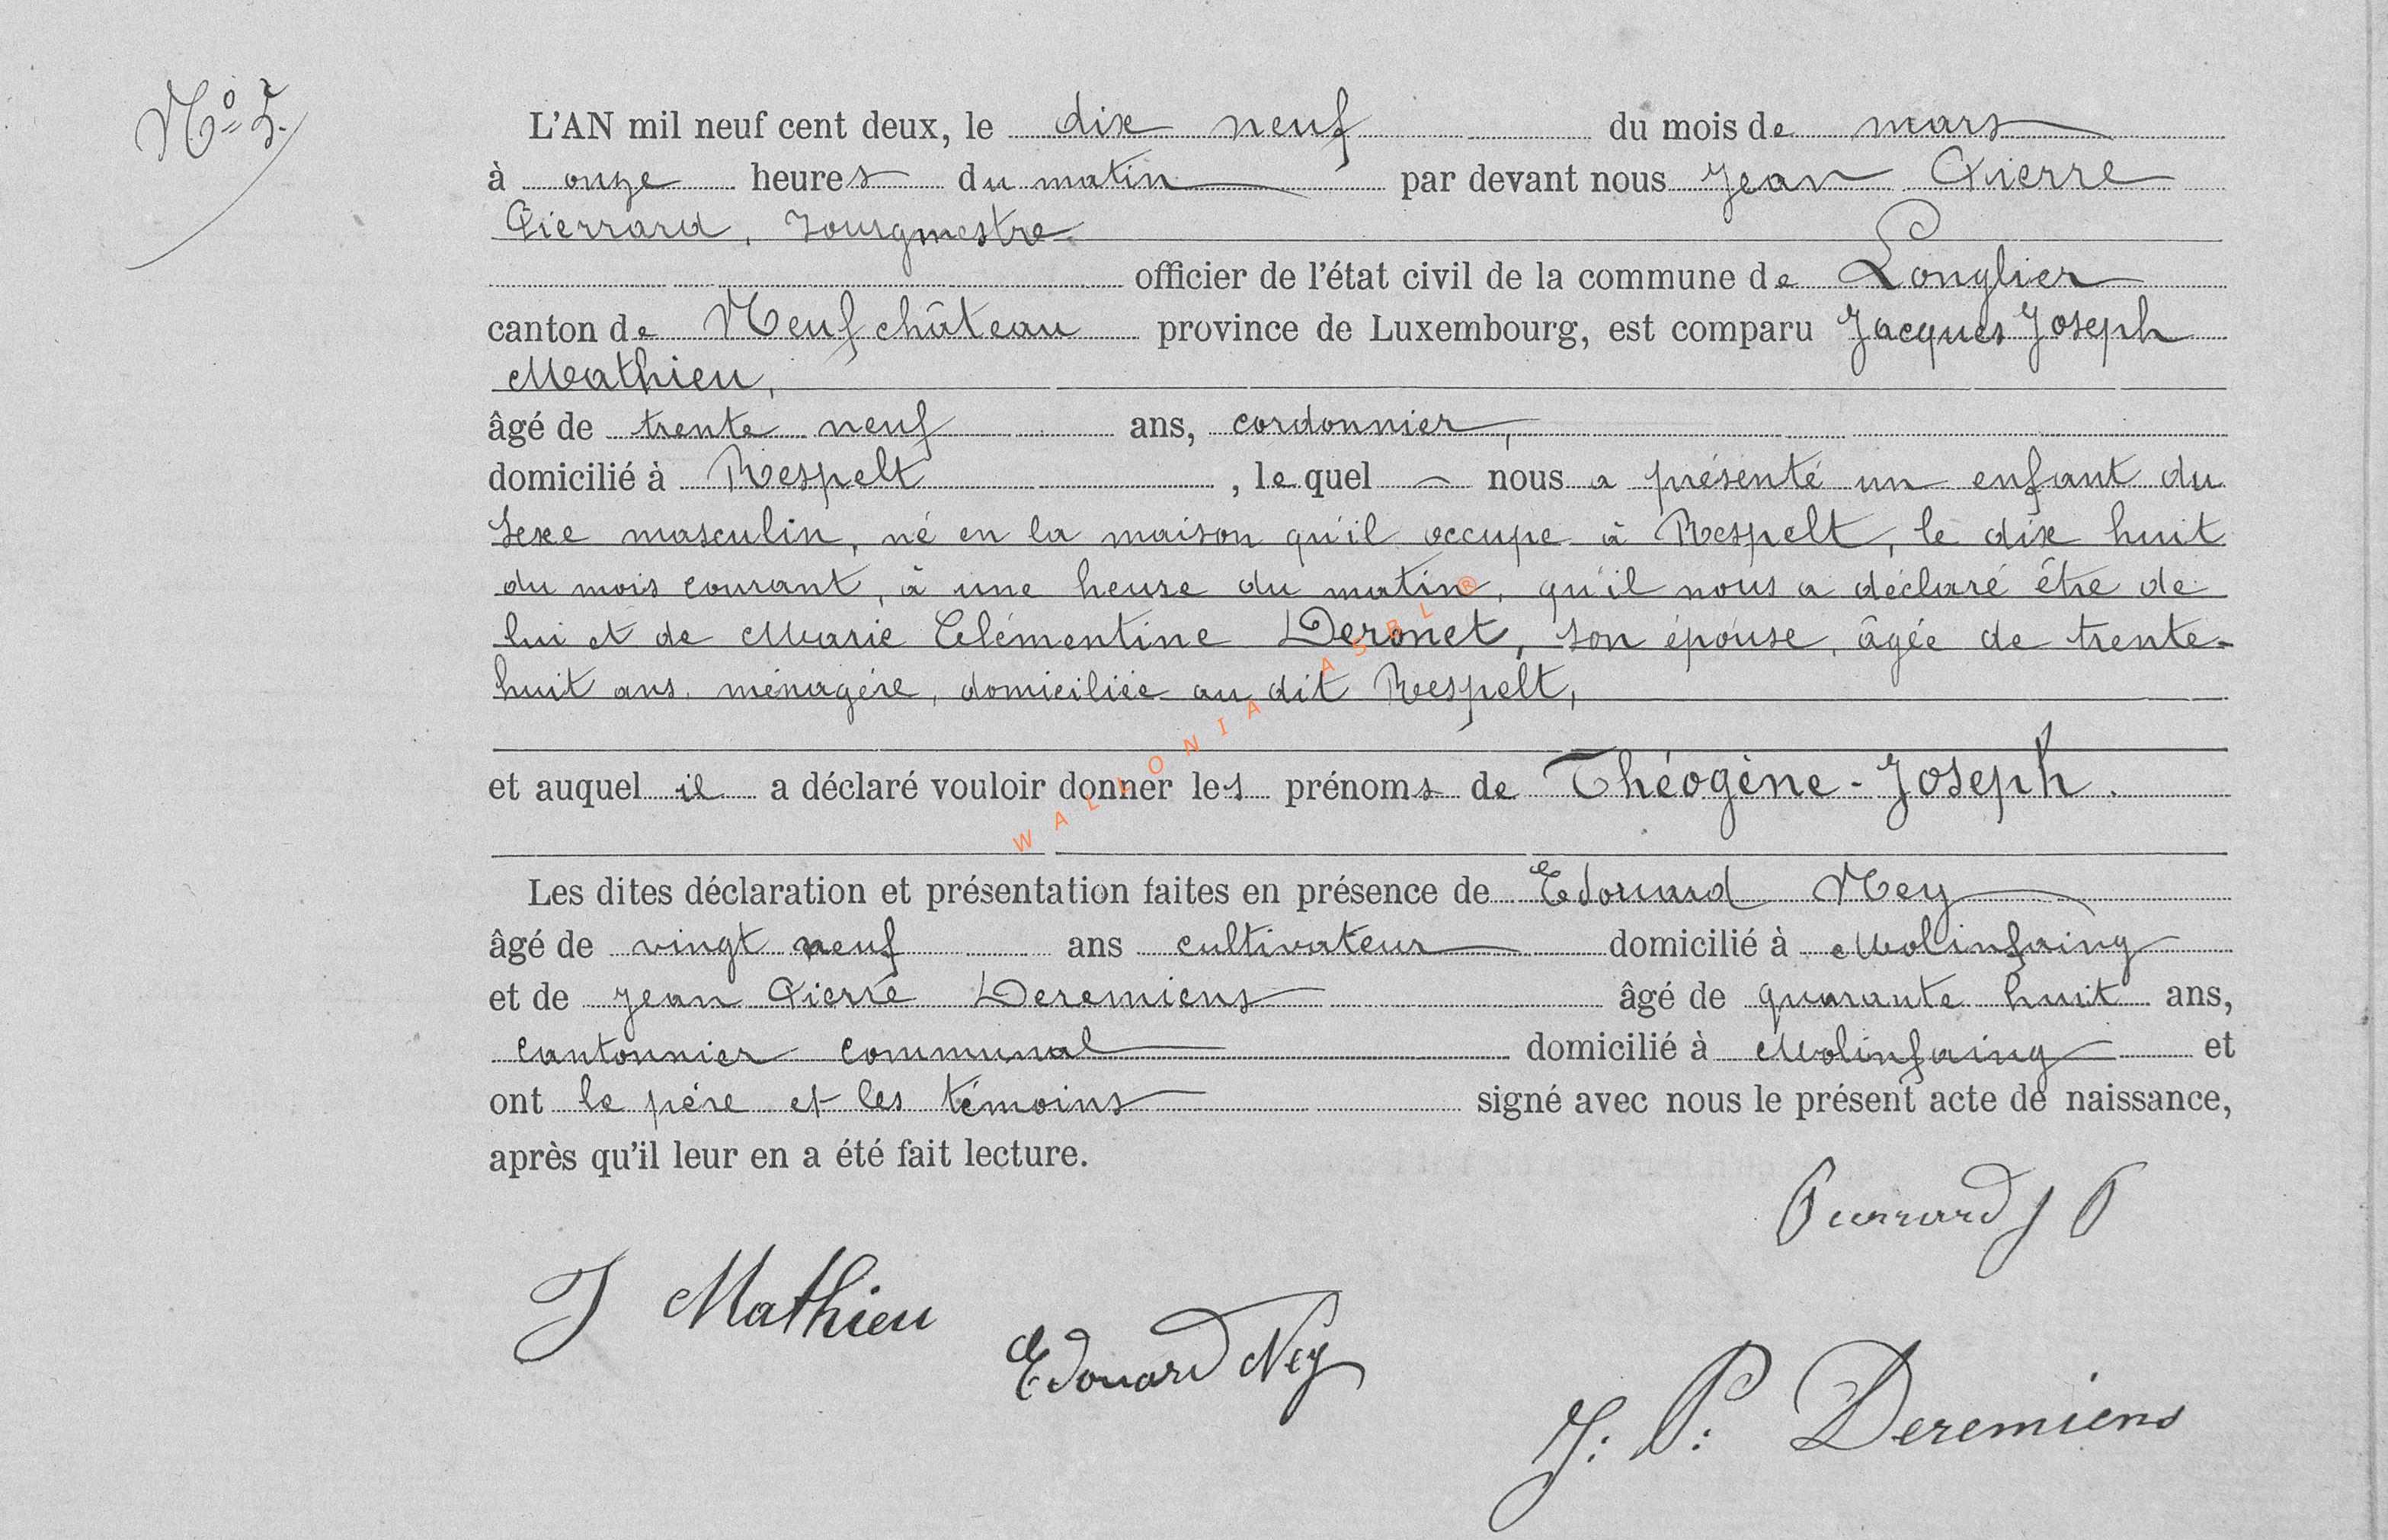 Nº 5.
L'AN mil neuf cent deux, le dix neuf du mois de mars
à onze heures du matin par devant nous Jean Pierre
Pierrard, bourgmestre
officier de l'état civil de la commune de Longlier
canton de Neufchâteau province de Luxembourg, est comparu Jacques Joseph
Mathieu,
âgé de trente neuf ans, cordonnier,
domicilié à Respelt, lequel nous a présenté un enfant du
sexe masculin, né en la maison qu'il occupe à Respelt, le dix huit
du mois courant, à une heure du matin, qu'il nous a déclaré être de
lui et de Marie Clémentine Deronet, son épouse, âgée de trente-
huit ans, ménagère, domiciliée au dit Respelt,
et auquel il a déclaré vouloir donner les prénoms de Théogène-Joseph.
Les dites déclaration et présentation faites en présence de Edouard Ney
âgé de vingt neuf ans cultivateur domicilié à Molinfaing
et de Jean Pierre Deremiens âgé de quarante huit ans,
cantonnier communal domicilié à Molinfaing et
ont le père et les témoins signé avec nous le présent acte de naissance,
après qu'il leur en a été fait lecture.
Pierrard J P
J Mathieu
Edouard Ney
J. P. Deremiens
WALLONIA ASBL ®